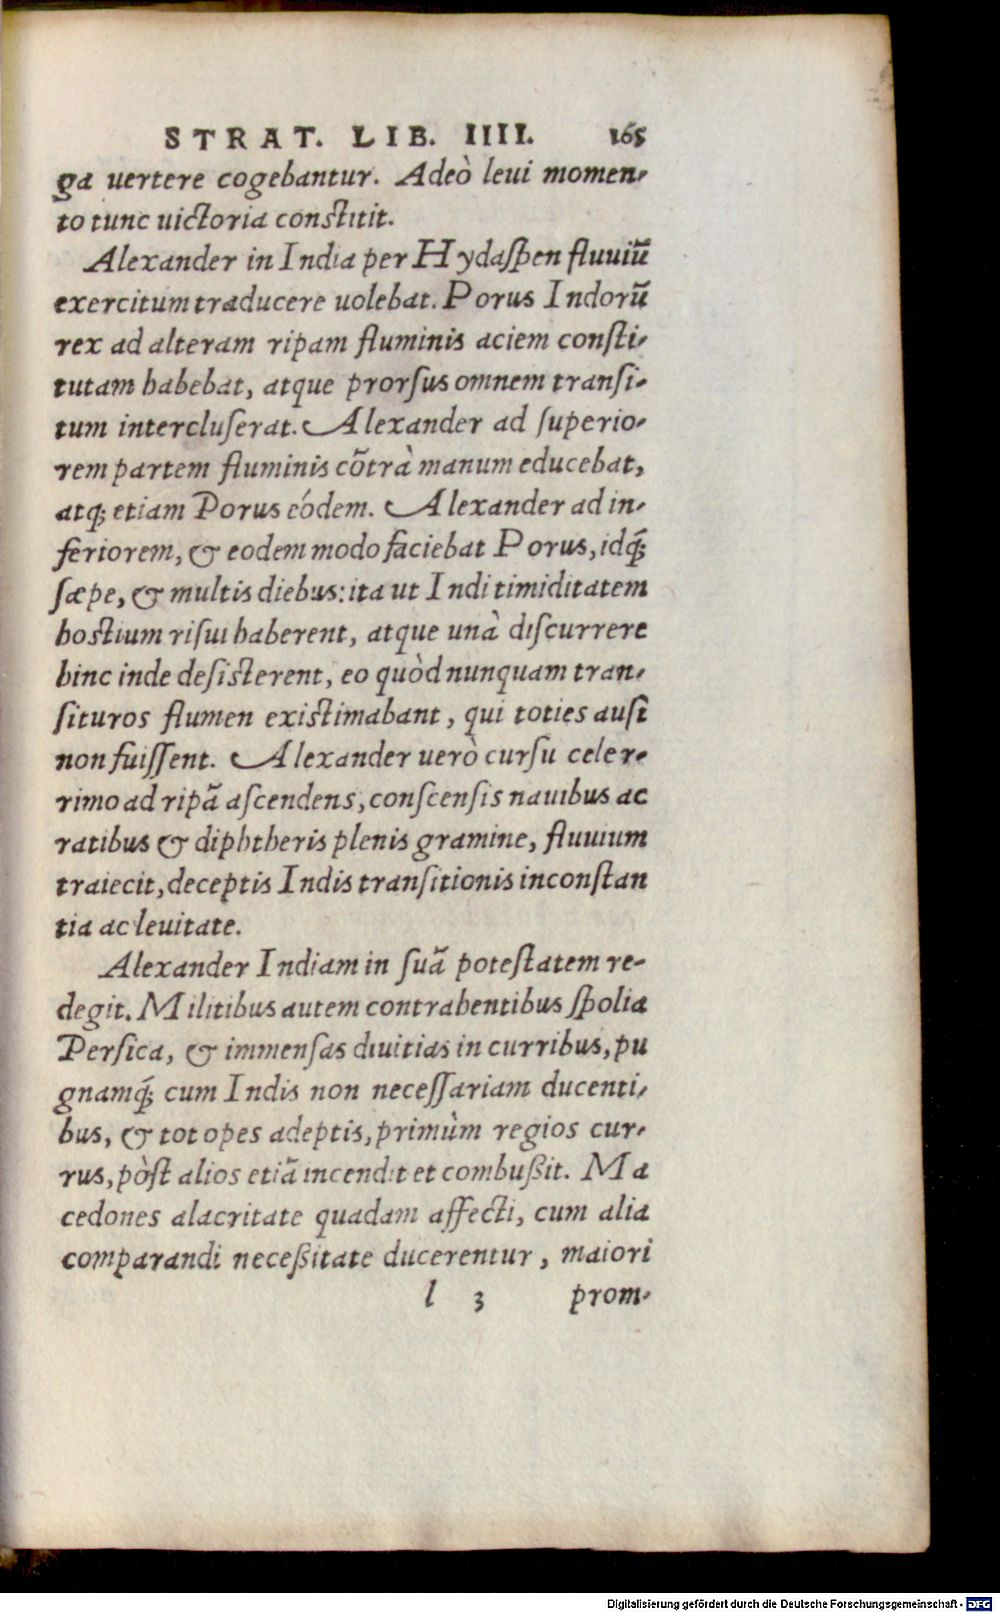 STRAT. LIB. IIII. 165
ga uertere cogebantur. Adeò leui momen-
to tunc uictoria constitit.
Alexander in India per Hydaspen fluuiũ
exercitum traducere uolebat. Porus Indorũ
rex ad alteram ripam fluminis aciem consti-
tutam habebat, atque prorsus omnem transi-
tum intercluserat. Alexander ad superio-
rem partem fluminis cõtrà manum educebat,
atq; etiam Porus eódem. Alexander ad in-
feriorem, & eodem modo faciebat Porus, idq́;
sæpe, & multis diebus: ita ut Indi timiditatem
hostium risui haberent, atque unà discurrere
hinc inde desisterent, eo quòd nunquam tran-
situros flumen existimabant, qui toties ausi
non fuissent. Alexander uerò cursu celer-
rimo ad ripã ascendens, conscensis nauibus ac
ratibus & diphtheris plenis gramine, fluuium
traiecit, deceptis Indis transitionis inconstan
tia ac leuitate.
Alexander Indiam in suã potestatem re-
degit. Militibus autem contrahentibus spolia
Persica, & immensas diuitias in curribus, pu
gnamq́; cum Indis non necessariam ducenti-
bus, & tot opes adeptis, primùm regios cur-
rus, pòst alios etiã incendit et combußit. Ma
cedones alacritate quadam affecti, cum alia
comparandi neceßitate ducerentur, maiori
l 3 prom-
Digitalisierung gefördert durch die Deutsche Forschungsgemeinschaft - DFG